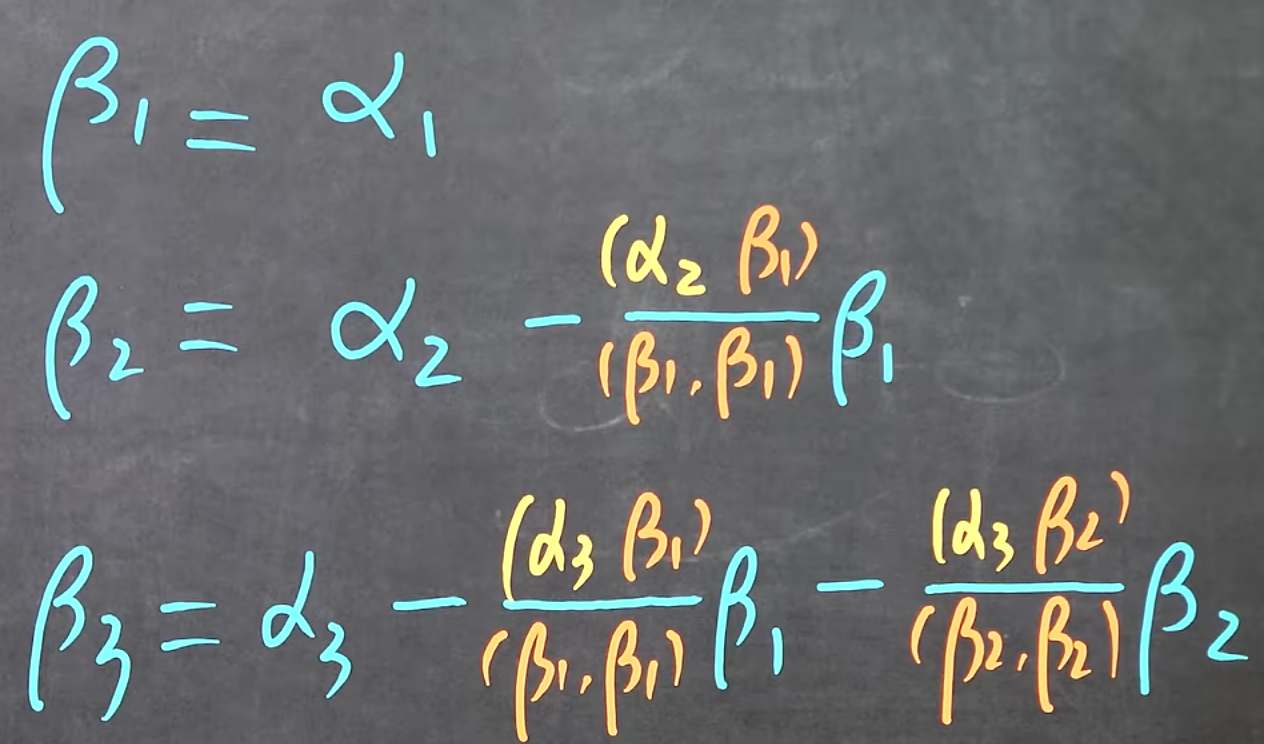 β₁ = α₁
β₂ = α₂ − (α₂ β₁)/(β₁, β₁) β₁
β₃ = α₃ − (α₃ β₁)/(β₁, β₁) β₁ − (α₃ β₂)/(β₂, β₂) β₂